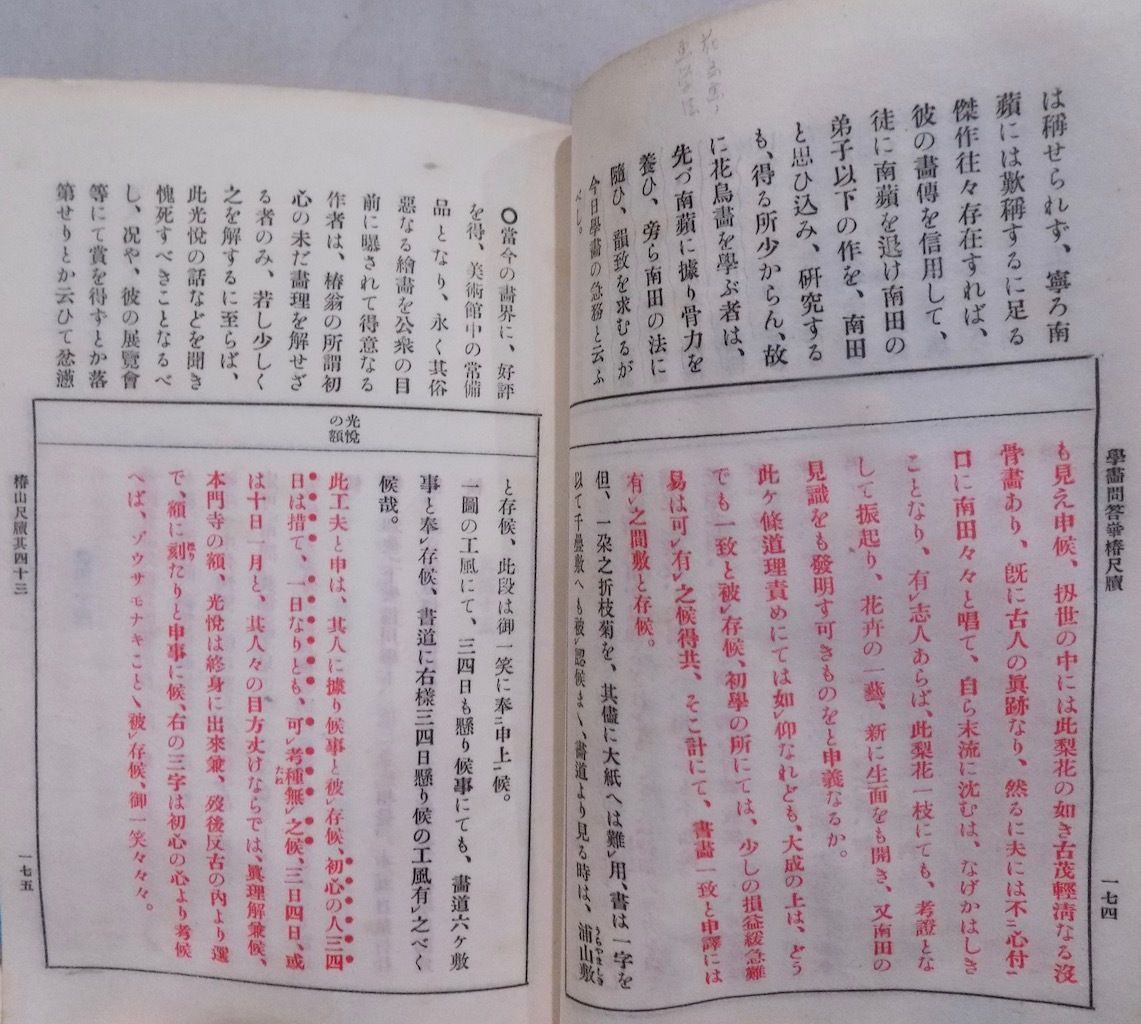 學畫問答崋椿尺牘
一七四
は稱せられず、寧ろ南
蘋には歎稱するに足る
傑作往々存在すれば、
彼の畫傳を信用して、
徒に南蘋を退け南田の
弟子以下の作を、南田
と思ひ込み、研究する
も、得る所少からん、故
に花鳥畫を學ぶ者は、
先づ南蘋に據り骨力を
養ひ、旁ら南田の法に
隨ひ、韻致を求むるが
今日學畫の急務と云ふ
べし。
も見え申候、扨世の中には此梨花の如き古茂輕淸なる沒
骨畫あり、旣に古人の眞跡なり、然るに夫には不㆓心付㆒
口に南田々々と唱て、自ら末流に沈むは、なげかはしき
ことなり、有㆑志人あらば、此梨花一枝にても、考證とな
して振起り、花卉の一藝、新に生面をも開き、又南田の
見識をも發明す可きものをと申義なるか。
此ケ條道理責めにては如㆑仰なれども、大成の上は、どう
でも一致と被㆑存候、初學の所にては、少しの損益緩急難
易は可㆑有㆑之候得共、そこ計にて、書畫一致と申譯には
有㆑之間敷と存候。
但、一朶之折枝菊を、其儘に大紙へは難㆑用、書は一字を
以て千疊敷へも被㆑認候まゝ、書道より見る時は、浦山敷
うらやましき
と存候、此段は御一笑に奉㆓申上㆒候。
一圖の工風にて、三四日も懸り候事にても、畫道六ケ敷
事と奉㆑存候、書道に右樣三四日懸り候の工風有㆑之べく
候哉。
光悅
の額
此工夫と申は、其人に據り候事と被㆑存候、初心の人三四
日は措て、一日なりとも、可㆑考種無㆑之候、三日四日、或
たね
は十日一月と、其人々の目方丈けならでは、眞理解兼候、
本門寺の額、光悅は終身に出來兼、歿後反古の內より選
で、額に刻たりと申事に候、右の三字は初心の心より考候
へば、ゾウサモナキことゝ被㆑存候、御一笑々々々。
○當今の畫界に、好評
を得、美術館中の常備
品となり、永く其俗
惡なる繪畫を公衆の目
前に曝されて得意なる
作者は、椿翁の所謂初
心の未だ畫理を解せざ
る者のみ、若し少しく
之を解するに至らば、
此光悅の話などを聞き
愧死すべきことなるべ
し、況や、彼の展覽會
等にて賞を得すとか落
第せりとか云ひて忿懣
椿山尺牘其四十三
一七五